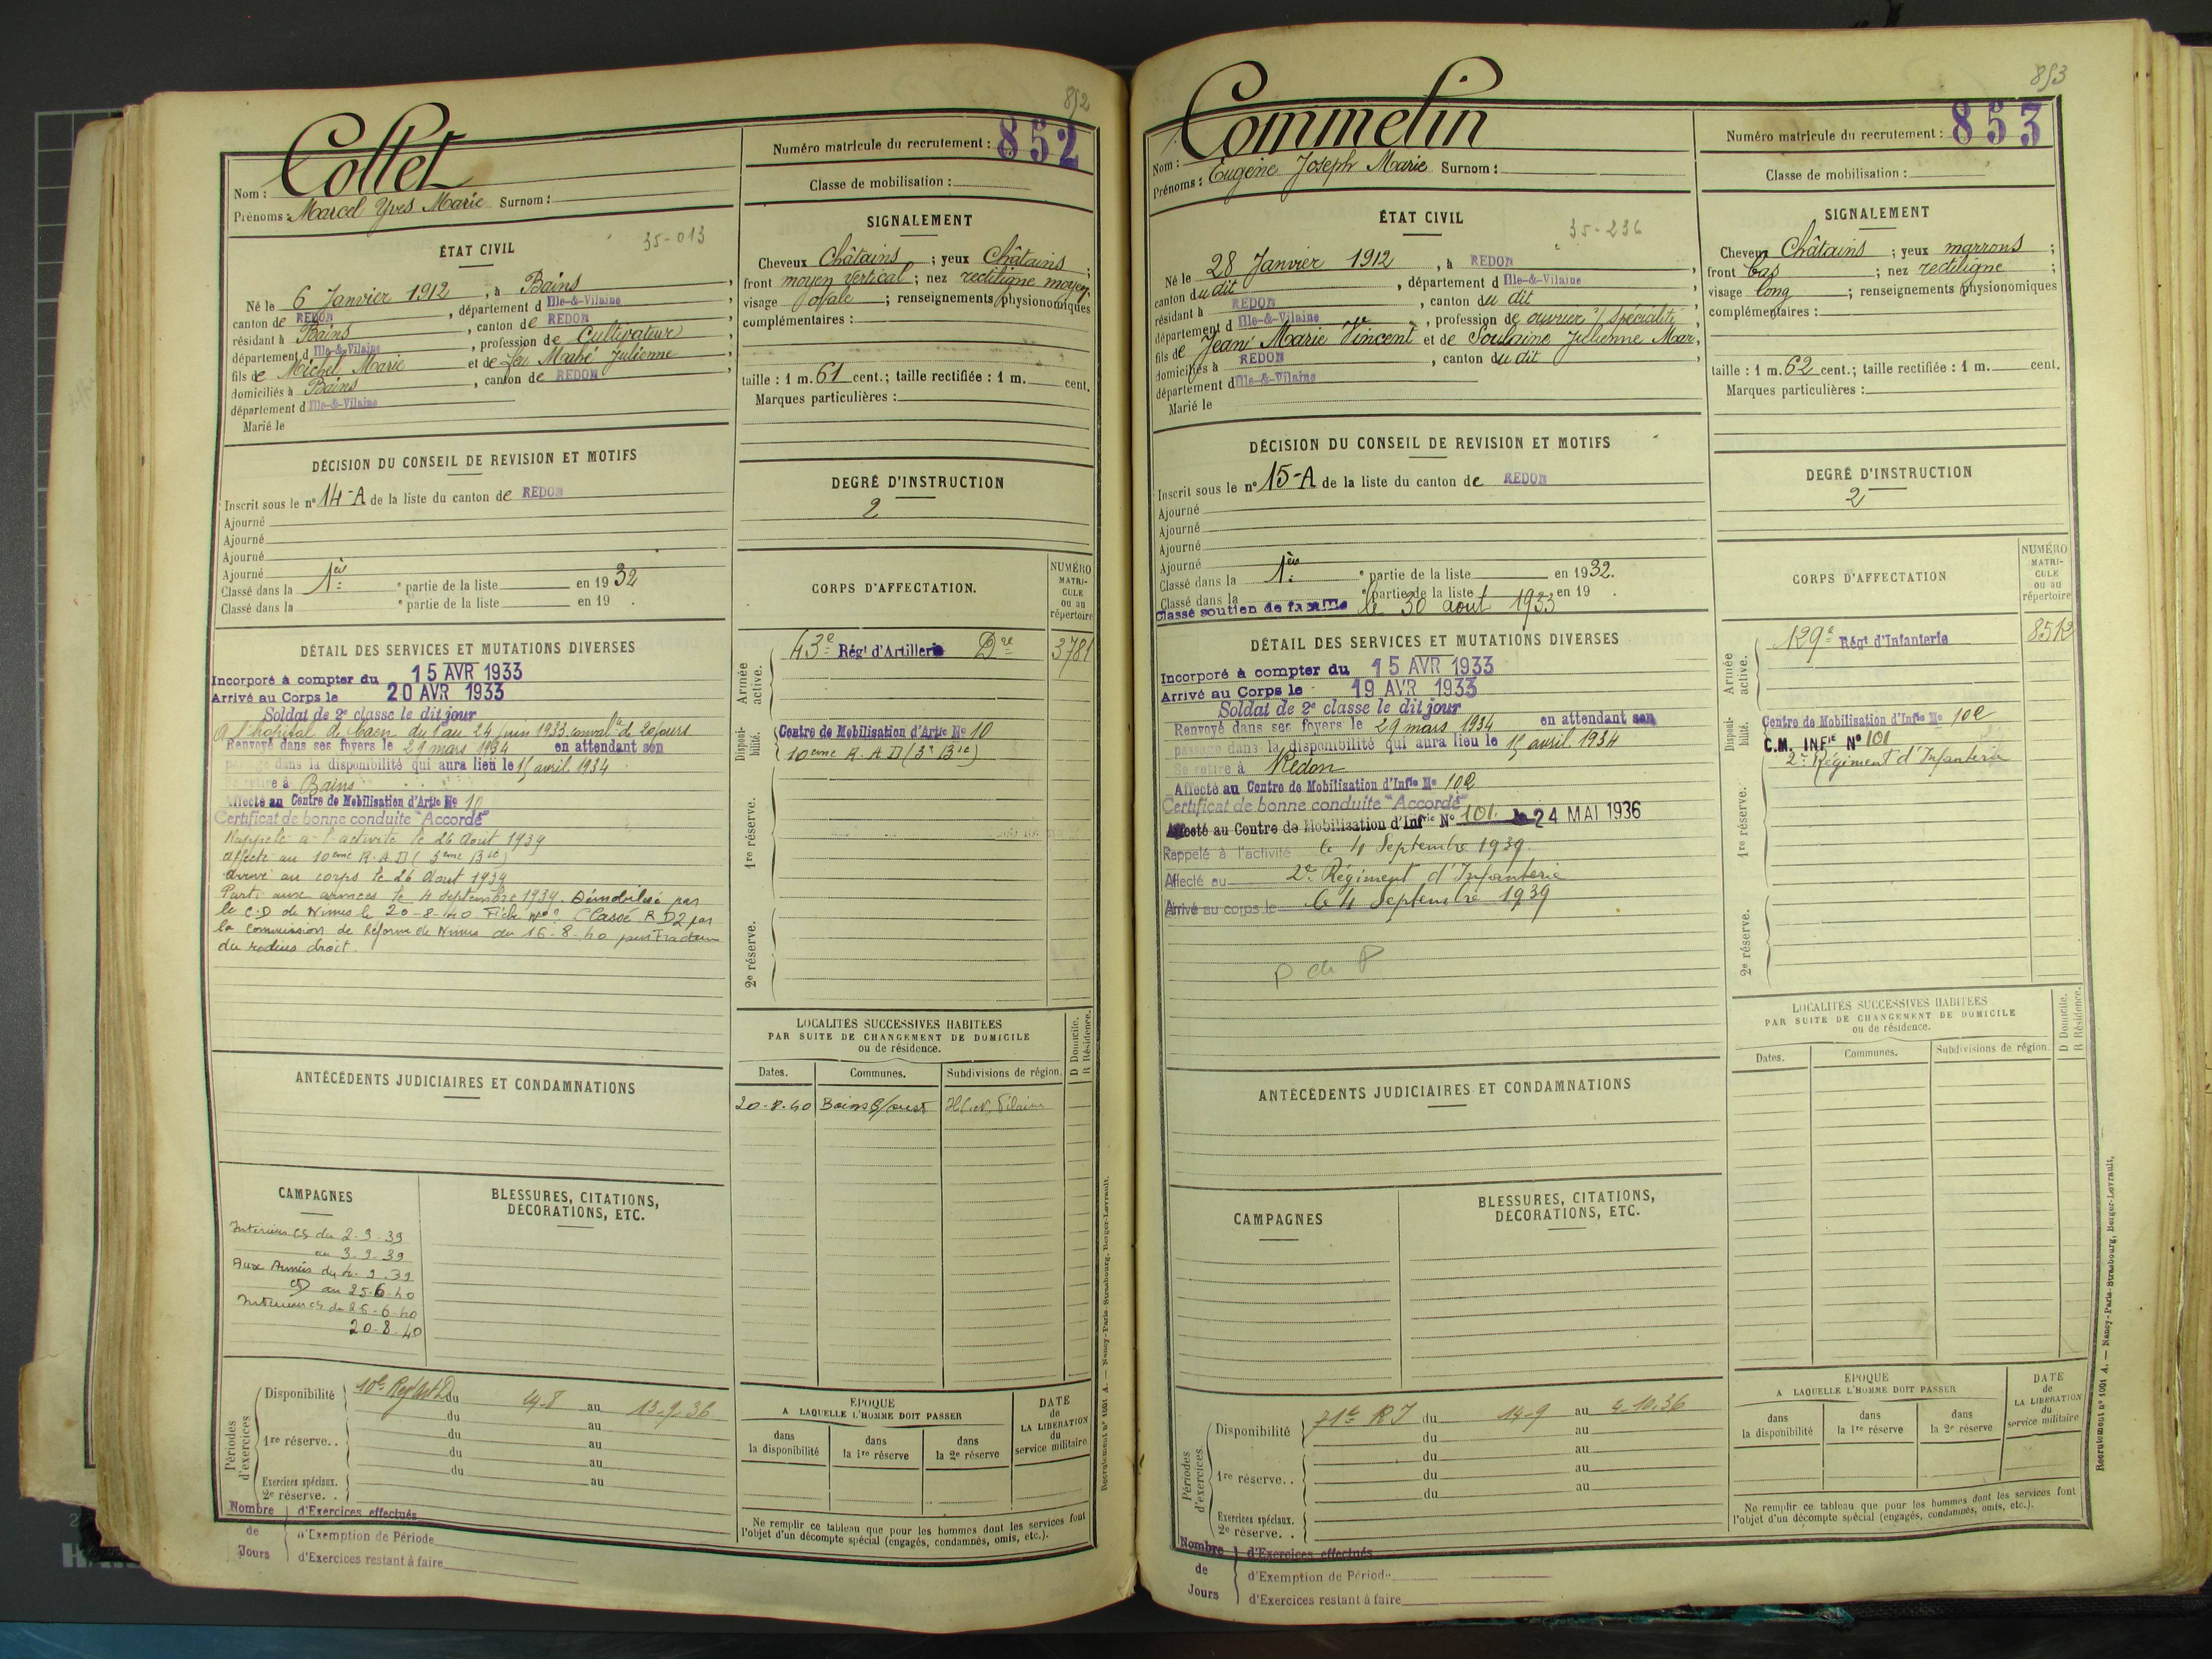 852
Collet
Nom :
Prénoms : Marcel Yves Marie Surnom :
Numéro matricule du recrutement : 852
Classe de mobilisation :
ÉTAT CIVIL
35-013
Né le 6 Janvier 1912, à Bains,
canton de REDON, département d Ille-&-Vilaine,
résidant à Bains, canton de REDON,
département d Ille-&-Vilaine, profession de Cultivateur,
fils de Michel Marie et de feu Mabé Julienne,
domiciliés à Bains, canton de REDON,
département d Ille-&-Vilaine
Marié le
SIGNALEMENT
Cheveux Châtains ; yeux Châtains ;
front moyen vertical ; nez rectiligne moyen,
visage Ovale ; renseignements physionomiques
complémentaires :
taille : 1 m. 61 cent.; taille rectifiée : 1 m. cent.
Marques particulières :
DÉCISION DU CONSEIL DE REVISION ET MOTIFS
Inscrit sous le n° 14-A de la liste du canton de REDON
Ajourné
Ajourné
Ajourné
Ajourné
Classé dans la 1ère partie de la liste en 1932
Classé dans la e partie de la liste en 19 .
DEGRÉ D'INSTRUCTION
2
DÉTAIL DES SERVICES ET MUTATIONS DIVERSES
Incorporé à compter du 15 AVR 1933
Arrivé au Corps le 20 AVR 1933
Soldat de 2e classe le dit jour
A l'hôpital de Caen du 1 au 24 juin 1933 conval de 20 jours
Renvoyé dans ses foyers le 29 mars 1934 en attendant son
passage dans la disponibilité qui aura lieu le 15 avril 1934
Se retire à Bains
Affecté au Centre de Mobilisation d'Artie No 10
Certificat de bonne conduite "Accordé"
Rappelé à l'activité le 26 Août 1939
affecté au 10eme R.A.D (3eme Bie)
Arrivé au corps le 26 Août 1939
Parti aux armées le 4 septembre 1939. Démobilisé par
le C.D de Nimes le 20-8-40 Fiche n° Classé R D2 par
la commission de Réforme de Nimes du 16-8-40 pour Fracture
du radius droit.
CORPS D'AFFECTATION.
NUMÉRO MATRICULE ou au répertoire
Armée active.
43e Régt d'Artillerie Dre 3781
Disponibilité.
Centre de Mobilisation d'Artie No 10
10eme R.A.D (3e Bie)
1re réserve.
2e réserve.
LOCALITÉS SUCCESSIVES HABITÉES
PAR SUITE DE CHANGEMENT DE DOMICILE
ou de résidence.
D Domicile.
R Résidence.
Dates. Communes. Subdivisions de région.
20-8-40 Bains s/oust Ille et Vilaine
ANTÉCÉDENTS JUDICIAIRES ET CONDAMNATIONS
CAMPAGNES
Intérieur CS du 2-9-39
au 3-9-39
Aux Armées du 4-9-39
CD au 25-6-40
Intérieur CS du 25-6-40
20-8-40
BLESSURES, CITATIONS,
DÉCORATIONS, ETC.
Périodes d'exercices
Disponibilité 10e Regt Art D du 19-8 au 13-9-36
du au
1re réserve.. du au
du au
du au
Exercices spéciaux.
2e réserve. . au
Nombre de Jours
d'Exercices effectués
d'Exemption de Période
d'Exercices restant à faire
ÉPOQUE
A LAQUELLE L'HOMME DOIT PASSER
dans la disponibilité
dans la 1re réserve
dans la 2e réserve
DATE de LA LIBÉRATION du service militaire
Ne remplir ce tableau que pour les hommes dont les services font
l'objet d'un décompte spécial (engagés, condamnés, omis, etc.).
Recrutement n° 1001 A. — Nancy-Paris-Strasbourg, Berger-Levrault.
853
Commelin
Nom :
Prénoms : Eugène Joseph Marie Surnom :
Numéro matricule du recrutement : 853
Classe de mobilisation :
ÉTAT CIVIL
35-236
Né le 28 Janvier 1912, à REDON,
canton du dit, département d Ille-&-Vilaine,
résidant à REDON, canton du dit
département d Ille-&-Vilaine, profession de ouvrier s/ Spécialité,
fils de Jean Marie Vincent et de Soulaine Julienne Mar,
domiciliés à REDON, canton du dit,
département d Ille-&-Vilaine
Marié le
SIGNALEMENT
Cheveux Châtains ; yeux marrons ;
front bas ; nez rectiligne ;
visage long ; renseignements physionomiques
complémentaires :
taille : 1 m. 62 cent.; taille rectifiée : 1 m. cent.
Marques particulières :
DÉCISION DU CONSEIL DE REVISION ET MOTIFS
Inscrit sous le n° 15-A de la liste du canton de REDON
Ajourné
Ajourné
Ajourné
Ajourné
Classé dans la 1ère partie de la liste en 1932.
Classé dans la e partie de la liste en 19 .
Classé soutien de famille le 30 août 1933
DEGRÉ D'INSTRUCTION
2
DÉTAIL DES SERVICES ET MUTATIONS DIVERSES
Incorporé à compter du 15 AVR 1933
Arrivé au Corps le 19 AVR 1933
Soldat de 2e classe le dit jour
Renvoyé dans ses foyers le 29 mars 1934 en attendant son
passage dans la disponibilité qui aura lieu le 15 avril 1934
Se retire à Redon
Affecté au Centre de Mobilisation d'Infie No 102
Certificat de bonne conduite "Accordé"
Affecté au Centre de Mobilisation d'Infrie No 101. le 24 MAI 1936
Rappelé à l'activité le 4 Septembre 1939.
Affecté au 2e Régiment d'Infanterie
Arrivé au corps le le 4 Septembre 1939
P de P
CORPS D'AFFECTATION
NUMÉRO MATRICULE ou au répertoire
Armée active.
129e Régt d'Infanterie 8512
Disponibilité.
Centre de Mobilisation d'Infie No 102
C.M. INFIE No 101
2e Régiment d'Infanterie
1re réserve.
2e réserve.
LOCALITÉS SUCCESSIVES HABITÉES
PAR SUITE DE CHANGEMENT DE DOMICILE
ou de résidence.
D Domicile.
R Résidence.
Dates. Communes. Subdivisions de région.
ANTÉCÉDENTS JUDICIAIRES ET CONDAMNATIONS
CAMPAGNES
BLESSURES, CITATIONS,
DÉCORATIONS, ETC.
Périodes d'exercices.
Disponibilité 71e RI du 14-9 au 4-10-36
du au
1re réserve.. du au
du au
du au
Exercices spéciaux.
2e réserve. .
Nombre de Jours
d'Exercices effectués
d'Exemption de Période
d'Exercices restant à faire
ÉPOQUE
A LAQUELLE L'HOMME DOIT PASSER
dans la disponibilité
dans la 1re réserve
dans la 2e réserve
DATE de LA LIBÉRATION du service militaire
Ne remplir ce tableau que pour les hommes dont les services font
l'objet d'un décompte spécial (engagés, condamnés, omis, etc.).
Recrutement n° 1001 A. — Nancy-Paris-Strasbourg, Berger-Levrault.